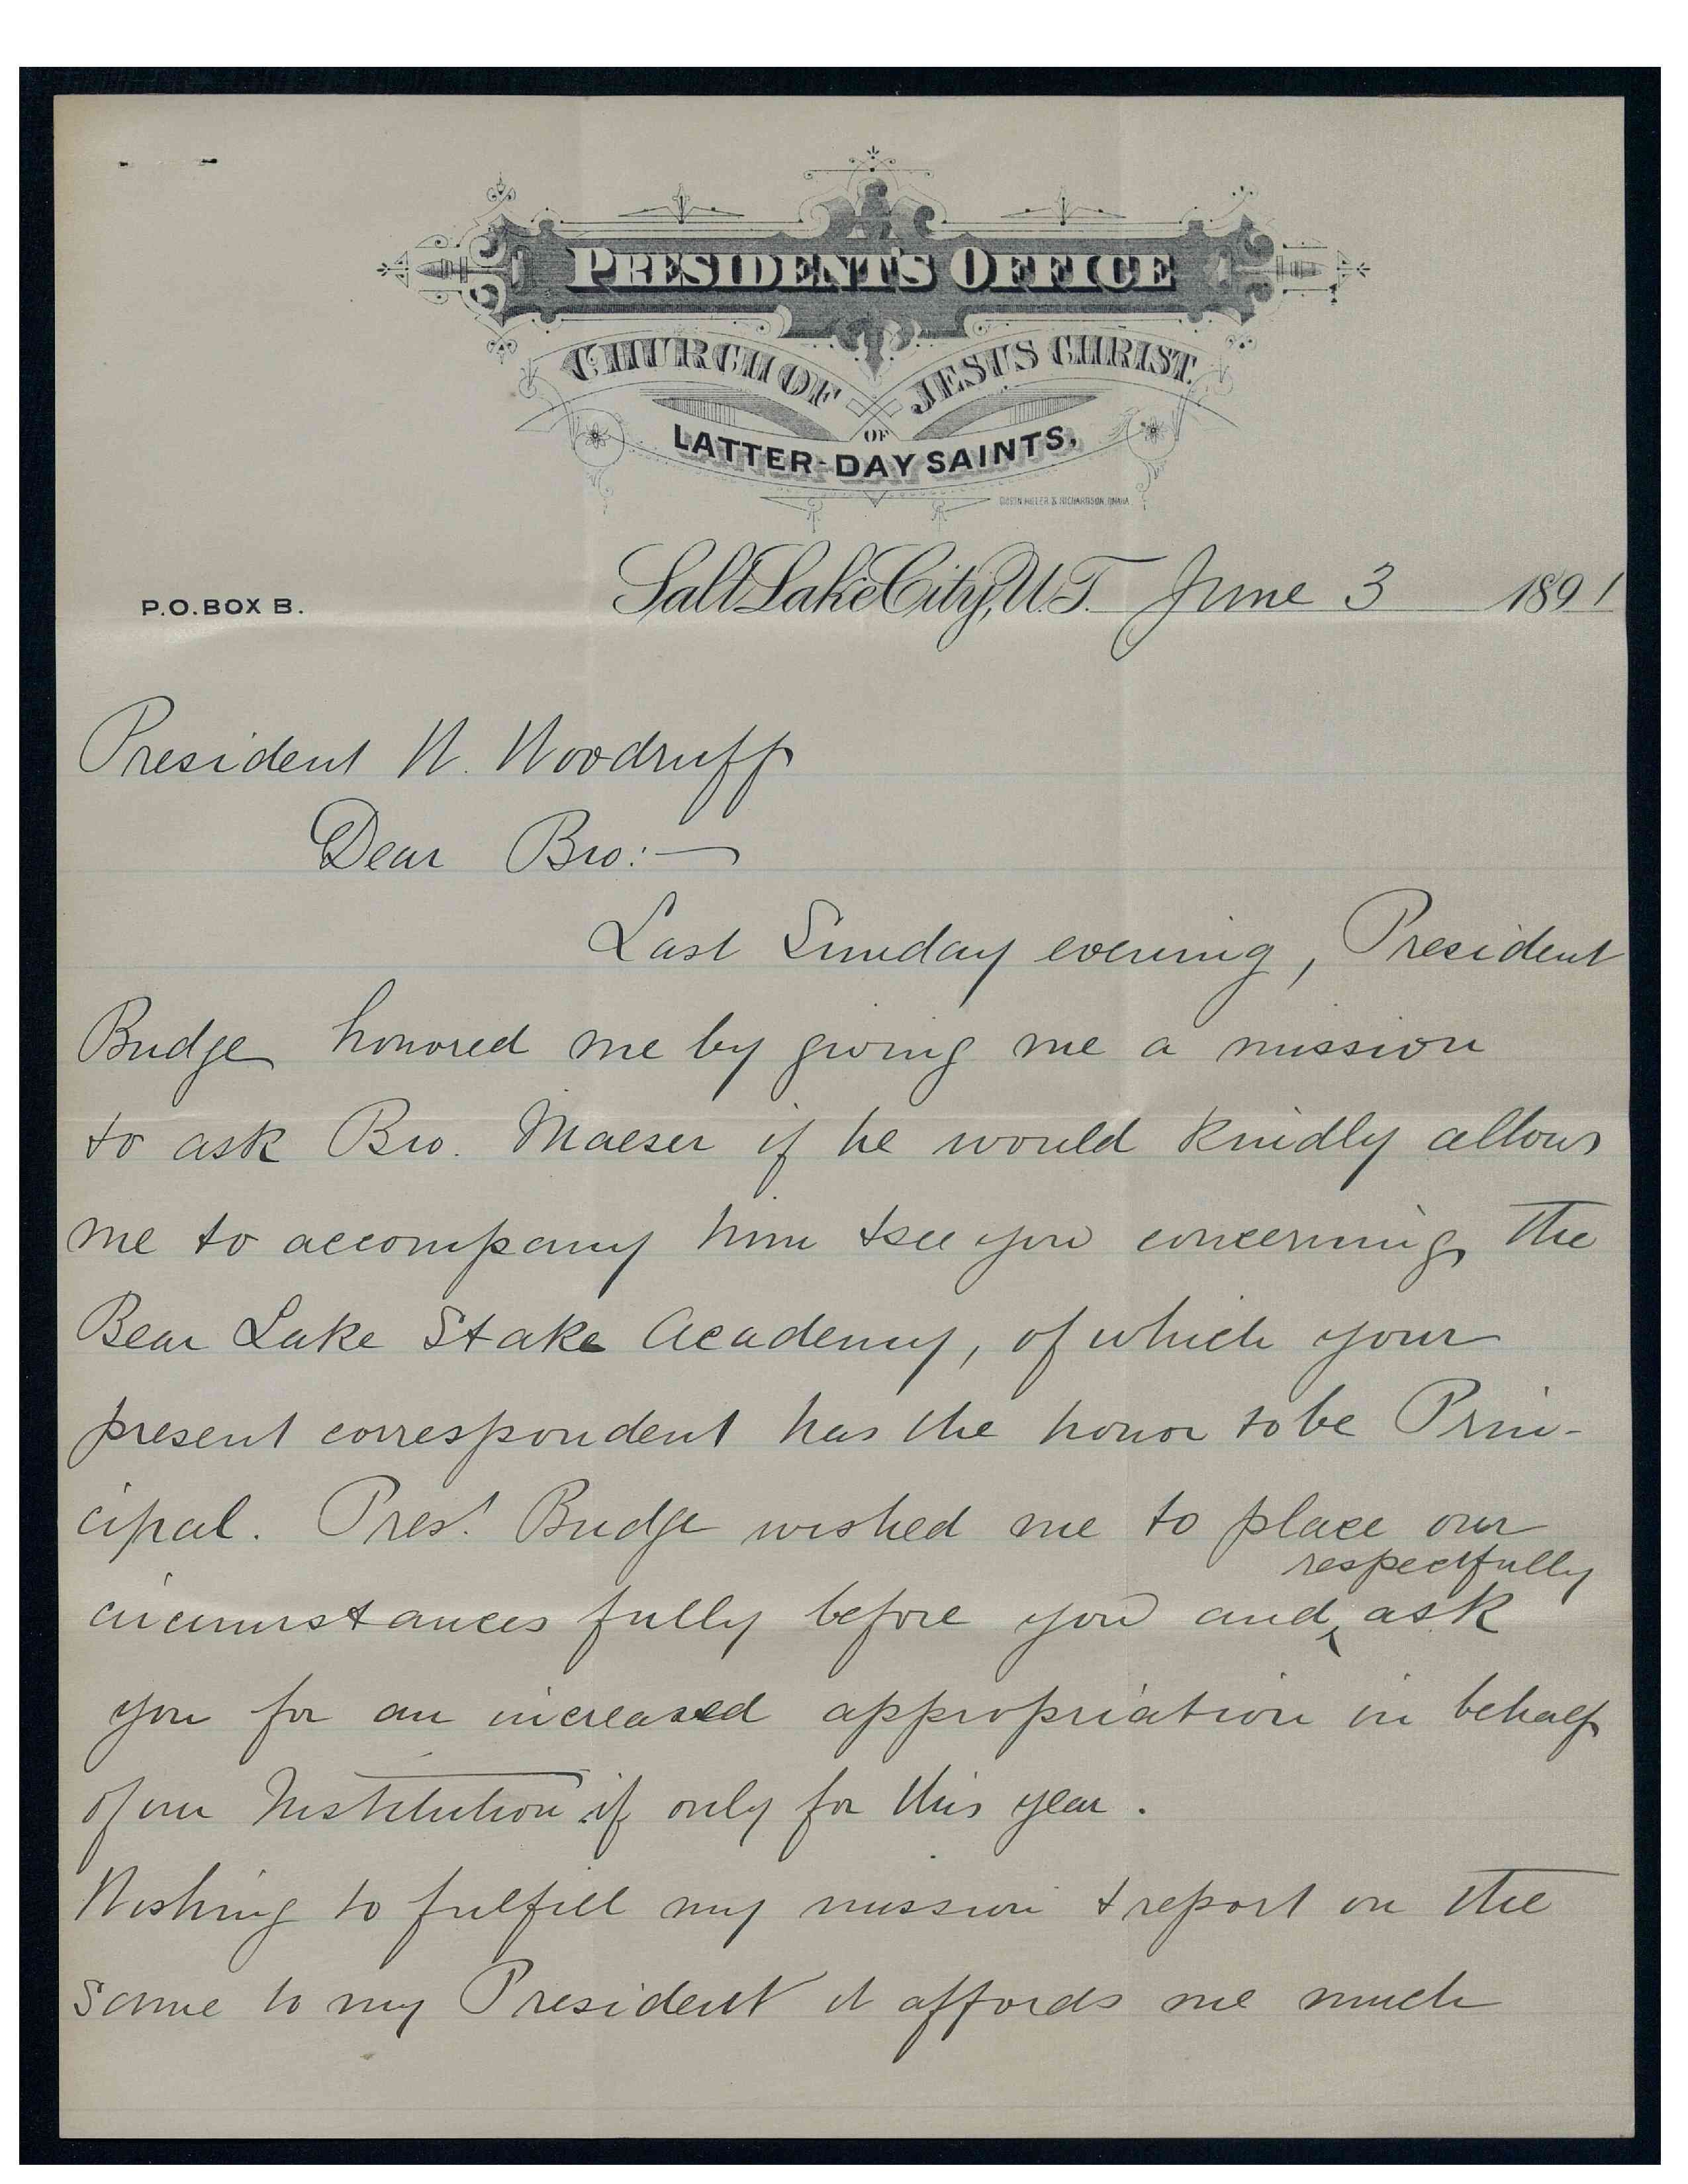 PRESIDENT'S OFFICE
CHURCH OF JESUS CHRIST
OF
LATTER-DAY SAINTS.
P.O. BOX B.
Salt Lake City, U.T. June 3 1891
President W. Woodruff
Dear Bro:—
Last Sunday evening, President
Budge honored me by giving me a mission
to ask Bro. Maeser if he would kindly allow
me to accompany him & see you concerning the
Bear Lake Stake Academy, of which your
present correspondent has the honor to be Prin-
cipal. Pres! Budge wished me to place our
respectfully
circumstances fully before you and ‸ ask
you for an increased appropriation in behalf
of our Institution if only for this year.
Wishing to fulfill my mission & report on the
same to my President it affords me much